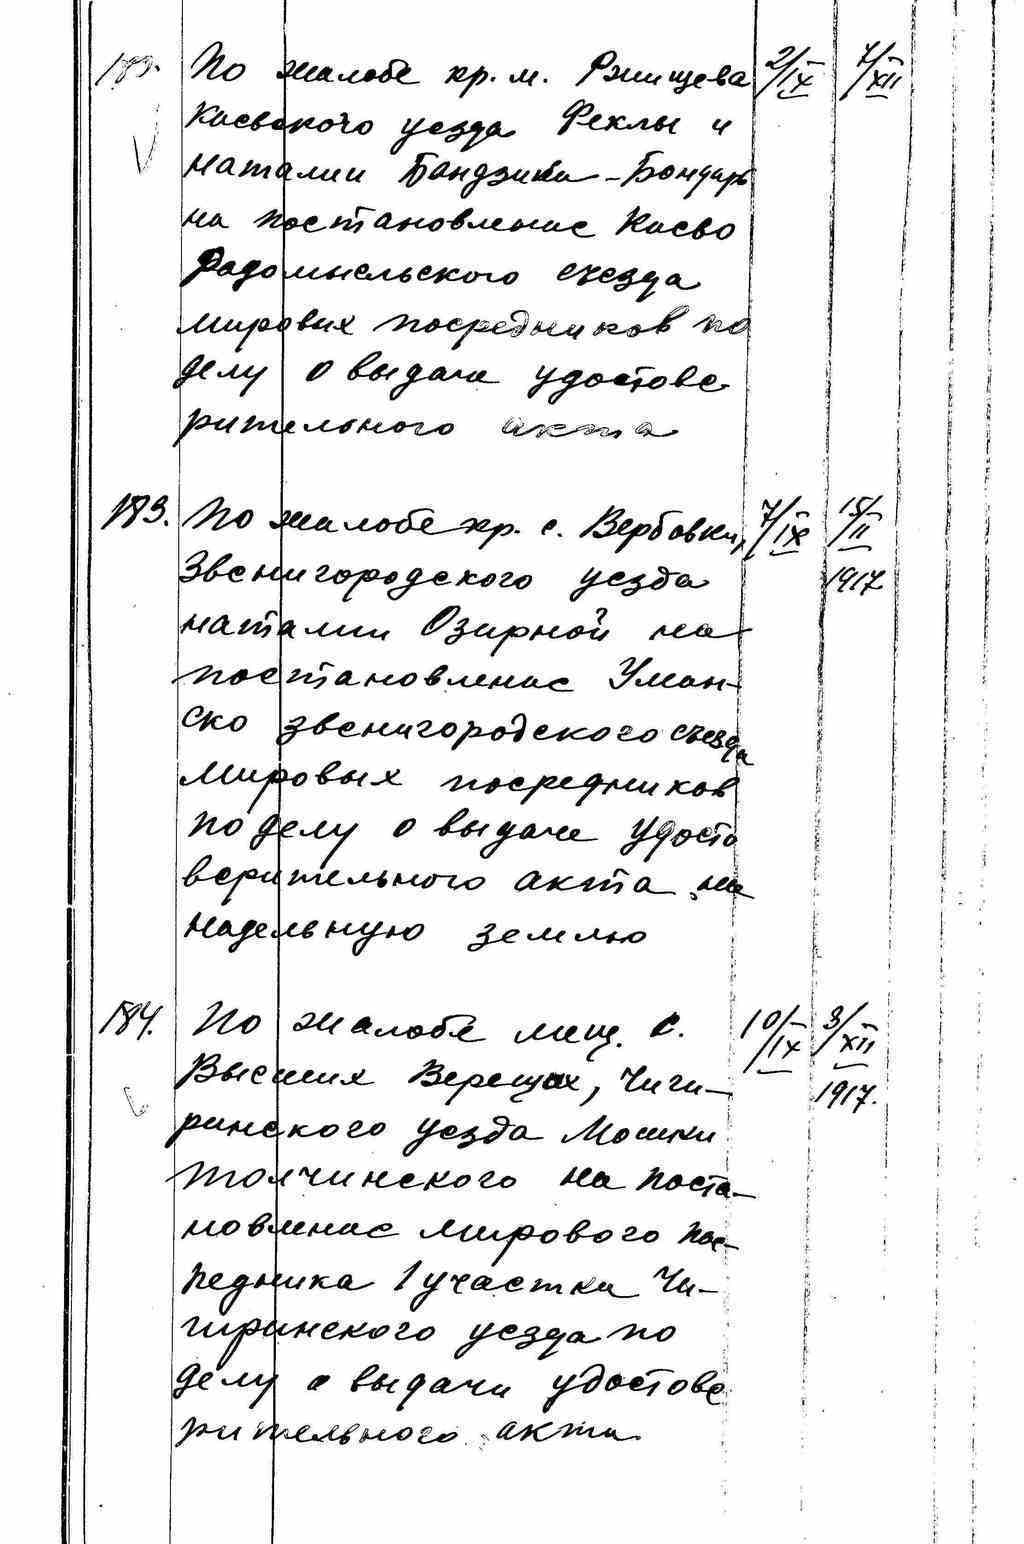 183. По жалобе кр. м. Ржищева 2/IX 7/XII
Киевского уезда Феклы и
Наталии Бандзиба-Бондарь
на постановление Киево
Радомысльского съезда
мировых посредников по
делу о выдаче удостове-
рительного акта
183. По жалобе кр. с. Вербовки, 7/IX 15/II
Звенигородского уезда 1917
Наталии Озирной на
постановление Уман-
ско звенигородского съезда
Мировых посредников
по делу о выдаче удосто
верительного акта на
надельную землю
184. По жалобе мещ. с. 10/IX 3/XII
Высших Верещах, Чиги- 1917.
ринского уезда Мошки
Толчинского на поста-
новление мирового пос-
педника 1 участка Чи-
гиринского уезда по
делу о выдачи удостове
рительного акта